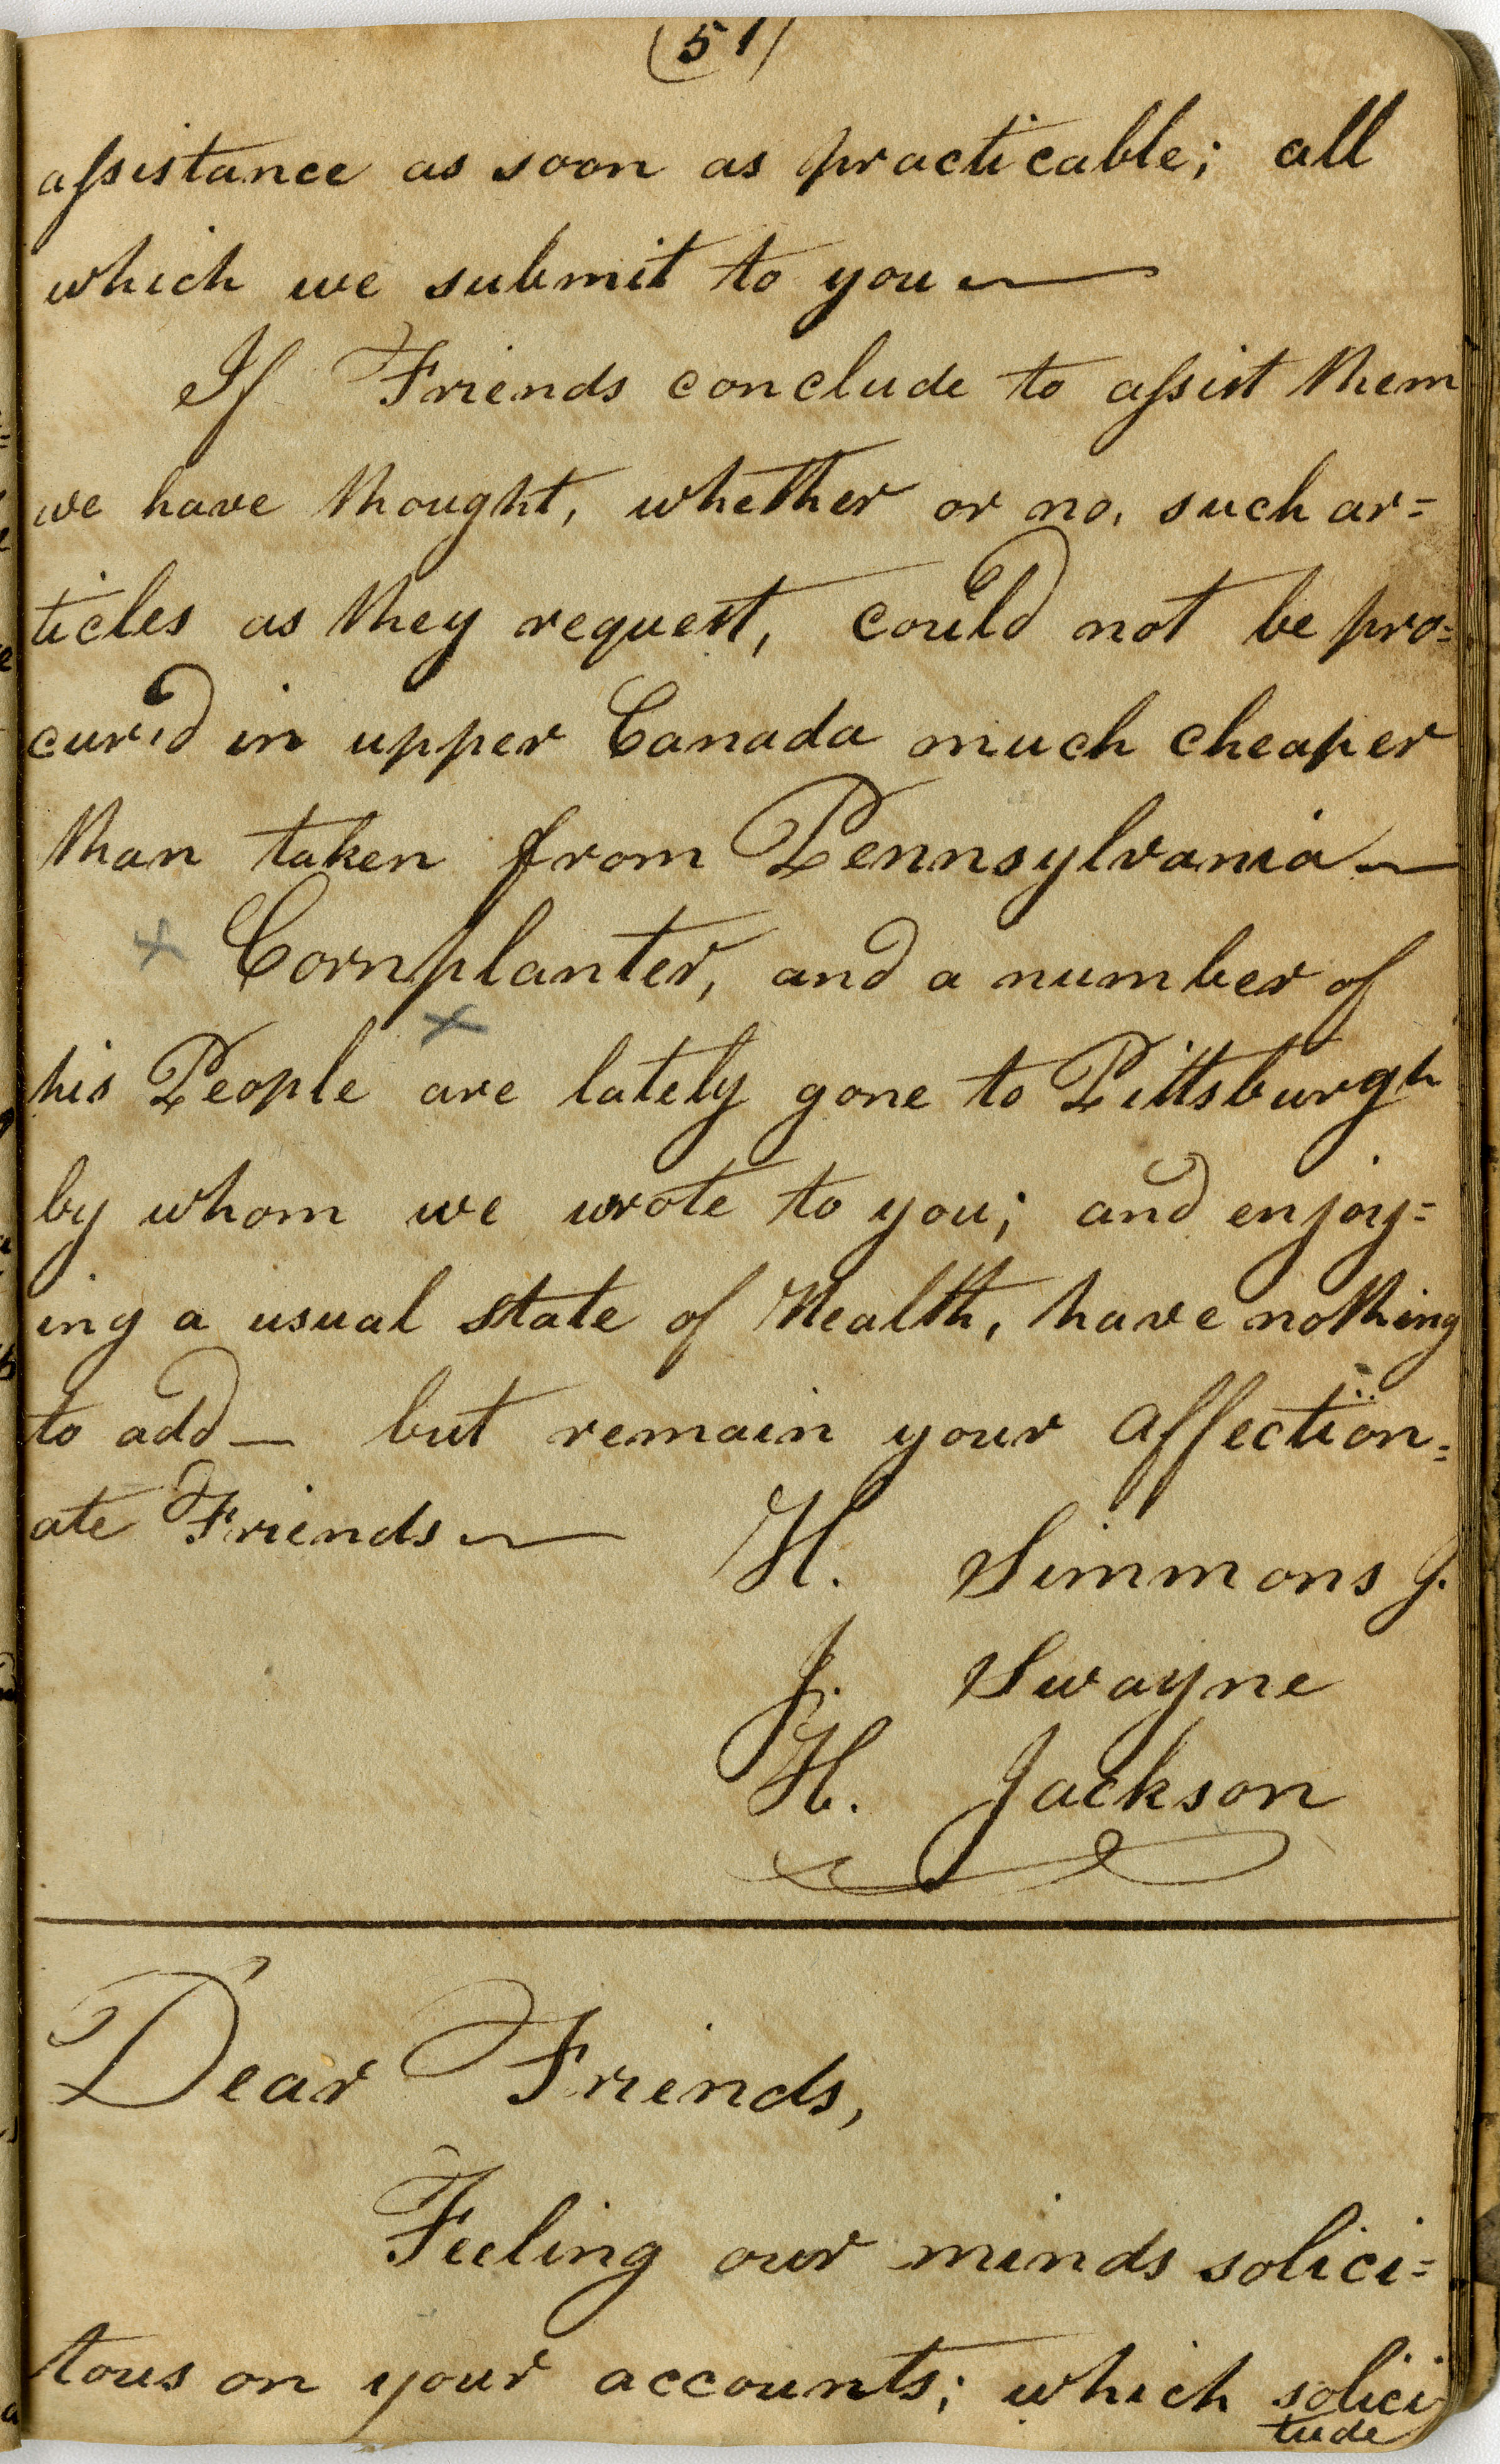 (51)
assistance as soon as practicable; all
which we submit to you —
If Friends conclude to assist them
we have thought, whether or no, such ar=
ticles as they request, could not be pro=
cur'd in upper Canada much cheaper
than taken from Pennsylvania —
x Cornplanter, and a number of
x
his People are lately gone to Pittsburgh
by whom we wrote to you; and enjoy=
ing a usual state of Health, have nothing
to add — but remain your affection=
ate Friends —
H. Simmons J.
J. Swayne
H. Jackson
Dear Friends,
Feeling our minds solici=
tous on your accounts; which solici
tude